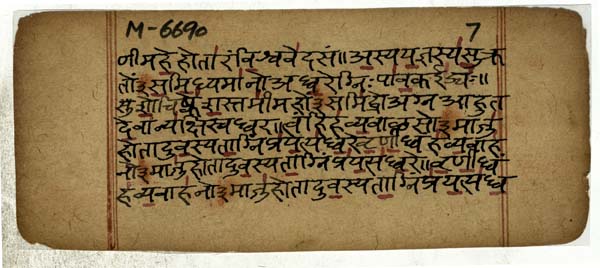 M-6690 7
णीमहे होतारं विश्ववेदसं॥ अस्य यज्ञस्य सुक्र
तों३समिध्यमानो अध्वरेग्निः पावक ईड्यः॥
शोचिष्केशस्तमीमहों३समिद्धो अग्न आहुत
देवान्यक्षि स्वध्वर॥ त्वं हि हव्यवाळसो३माजु
होता दुवस्यताग्निं प्रयत्यध्वरे वृणीध्वं हव्यवाह
नों३माजुहोता दुवस्यताग्निं प्रयत्यध्वरे॥ वृणीध्वं
हव्यवाहनों३माजुहोता दुवस्यताग्निं प्रयत्यध्व